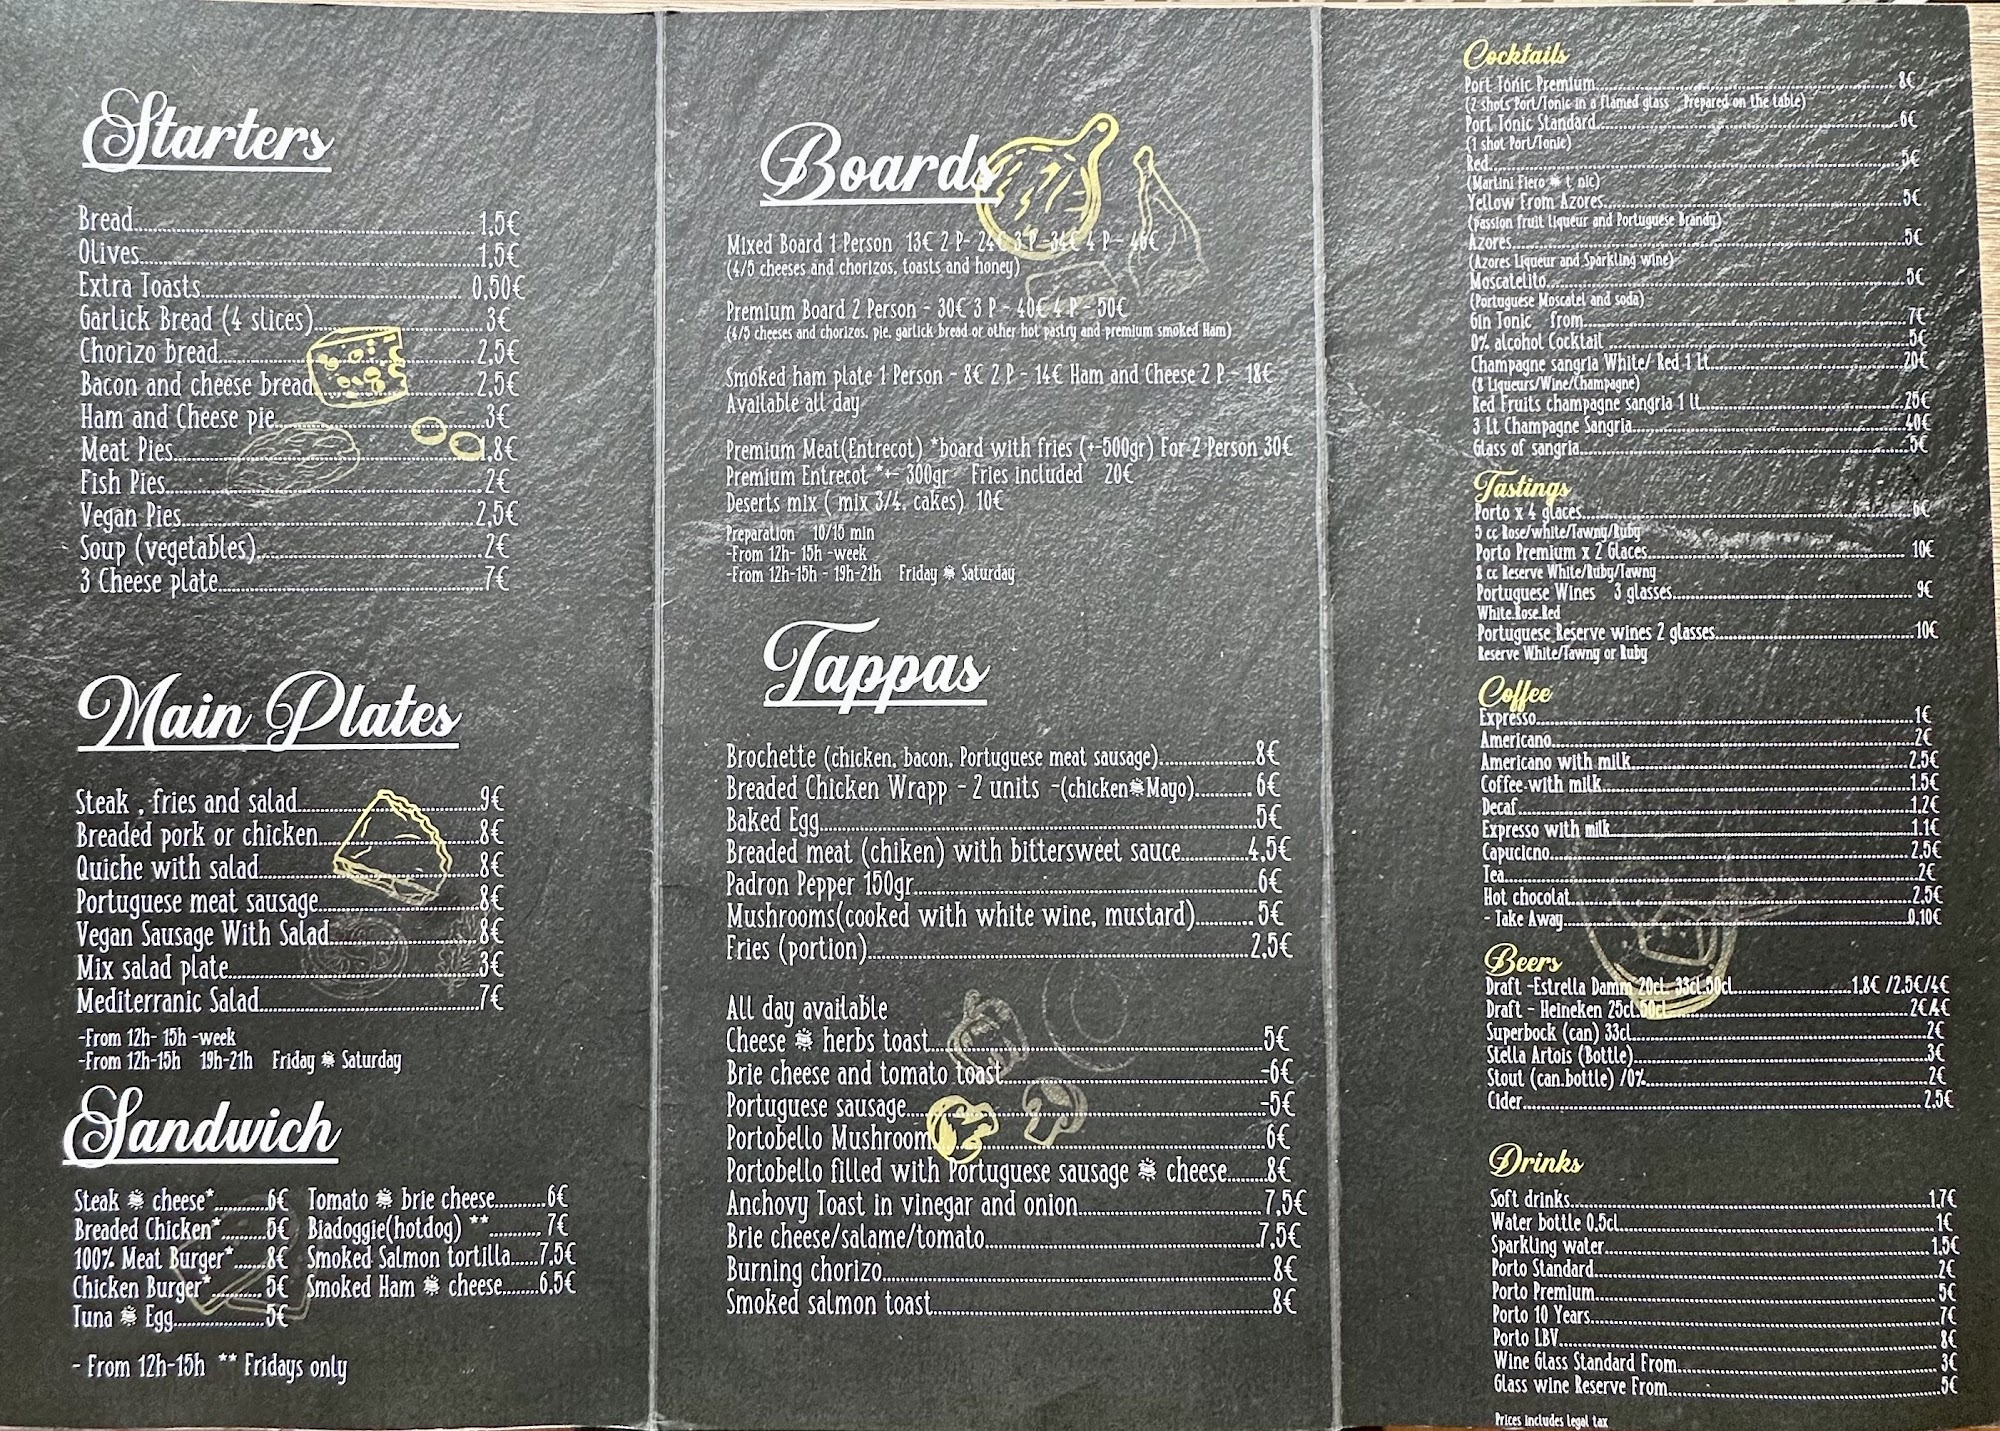 Starters
Bread 1,5€
Olives 1,5€
Extra Toasts 0,50€
Garlick Bread (4 slices) 3€
Chorizo bread 2,5€
Bacon and cheese bread 2,5€
Ham and Cheese pie 3€
Meat Pies 1,8€
Fish Pies 2€
Vegan Pies 2,5€
Soup (vegetables) 2€
3 Cheese plate 7€
Main Plates
Steak , fries and salad 9€
Breaded pork or chicken 8€
Quiche with salad 8€
Portuguese meat sausage 8€
Vegan Sausage With Salad 8€
Mix salad plate 3€
Mediterranic Salad 7€
-From 12h- 15h -week
-From 12h-15h 19h-21h Friday & Saturday
Sandwich
Steak & cheese* 6€ Tomato & brie cheese 6€
Breaded Chicken* 5€ Biadoggie(hotdog) ** 7€
100% Meat Burger* 8€ Smoked Salmon tortilla 7,5€
Chicken Burger* 5€ Smoked Ham & cheese 6,5€
Tuna & Egg 5€
- From 12h-15h ** Fridays only
Boards
Mixed Board 1 Person 13€ 2 P- 24€ 3 P- 34€ 4 P- 46€
(4/5 cheeses and chorizos, toasts and honey)
Premium Board 2 Person - 30€ 3 P - 40€ 4 P - 50€
(4/5 cheeses and chorizos, pie, garlick bread or other hot pastry and premium smoked Ham)
Smoked ham plate 1 Person - 8€ 2 P - 14€ Ham and Cheese 2 P - 18€
Available all day
Premium Meat(Entrecot) *board with fries (+-500gr) For 2 Person 30€
Premium Entrecot *+- 300gr Fries included 20€
Deserts mix ( mix 3/4, cakes) 10€
Preparation 10/15 min
-From 12h- 15h -week
-From 12h-15h - 19h-21h Friday & Saturday
Tappas
Brochette (chicken, bacon, Portuguese meat sausage) 8€
Breaded Chicken Wrapp - 2 units -(chicken&Mayo) 6€
Baked Egg 5€
Breaded meat (chiken) with bittersweet sauce 4,5€
Padron Pepper 150gr 6€
Mushrooms(cooked with white wine, mustard) 5€
Fries (portion) 2,5€
All day available
Cheese & herbs toast 5€
Brie cheese and tomato toast -6€
Portuguese sausage -5€
Portobello Mushroom 6€
Portobello filled with Portuguese sausage & cheese 8€
Anchovy Toast in vinegar and onion 7,5€
Brie cheese/salame/tomato 7,5€
Burning chorizo 8€
Smoked salmon toast 8€
Cocktails
Port Tonic Premium 8€
(2 shots Port/Tonic in a flamed glass Prepared on the table)
Port Tonic Standard 6€
(1 shot Port/Tonic)
Red 5€
(Martini Fiero & t nic)
Yellow From Azores 5€
(passion fruit liqueur and Portuguese Brandy)
Azores 5€
(Azores Liqueur and Sparkling wine)
Moscatelito 5€
(Portuguese Moscatel and soda)
Gin Tonic from 7€
0% alcohol Cocktail 5€
Champagne sangria White/ Red 1 lt 20€
(8 Liqueurs/Wine/Champagne)
Red Fruits champagne sangria 1 lt 25€
3 Lt Champagne Sangria 40€
Glass of sangria 5€
Tastings
Porto x 4 glaces 6€
5 cc Rose/white/Tawny/Ruby
Porto Premium x 2 Glaces 10€
8 cc Reserve White/Ruby/Tawny
Portuguese Wines 3 glasses 9€
White.Rose.Red
Portuguese Reserve wines 2 glasses 10€
Reserve White/Tawny or Ruby
Coffee
Expresso 1€
Americano 2€
Americano with milk 2,5€
Coffee with milk 1.5€
Decaf 1.2€
Expresso with milk 1.1€
Capucicno 2,5€
Tea 2€
Hot chocolat 2.5€
- Take Away 0,10€
Beers
Draft -Estrella Damm 20cl. 33cl.50cl 1,8€ /2,5€/4€
Draft - Heineken 25cl.50cl 2€/4€
Superbock (can) 33cl 2€
Stella Artois (Bottle) 3€
Stout (can.bottle) /0% 2€
Cider 2.5€
Drinks
Soft drinks 1,7€
Water bottle 0,5cl 1€
Sparkling water 1,5€
Porto Standard 2€
Porto Premium 5€
Porto 10 Years 7€
Porto LBV 8€
Wine Glass Standard From 3€
Glass wine Reserve From 5€
Prices includes legal tax